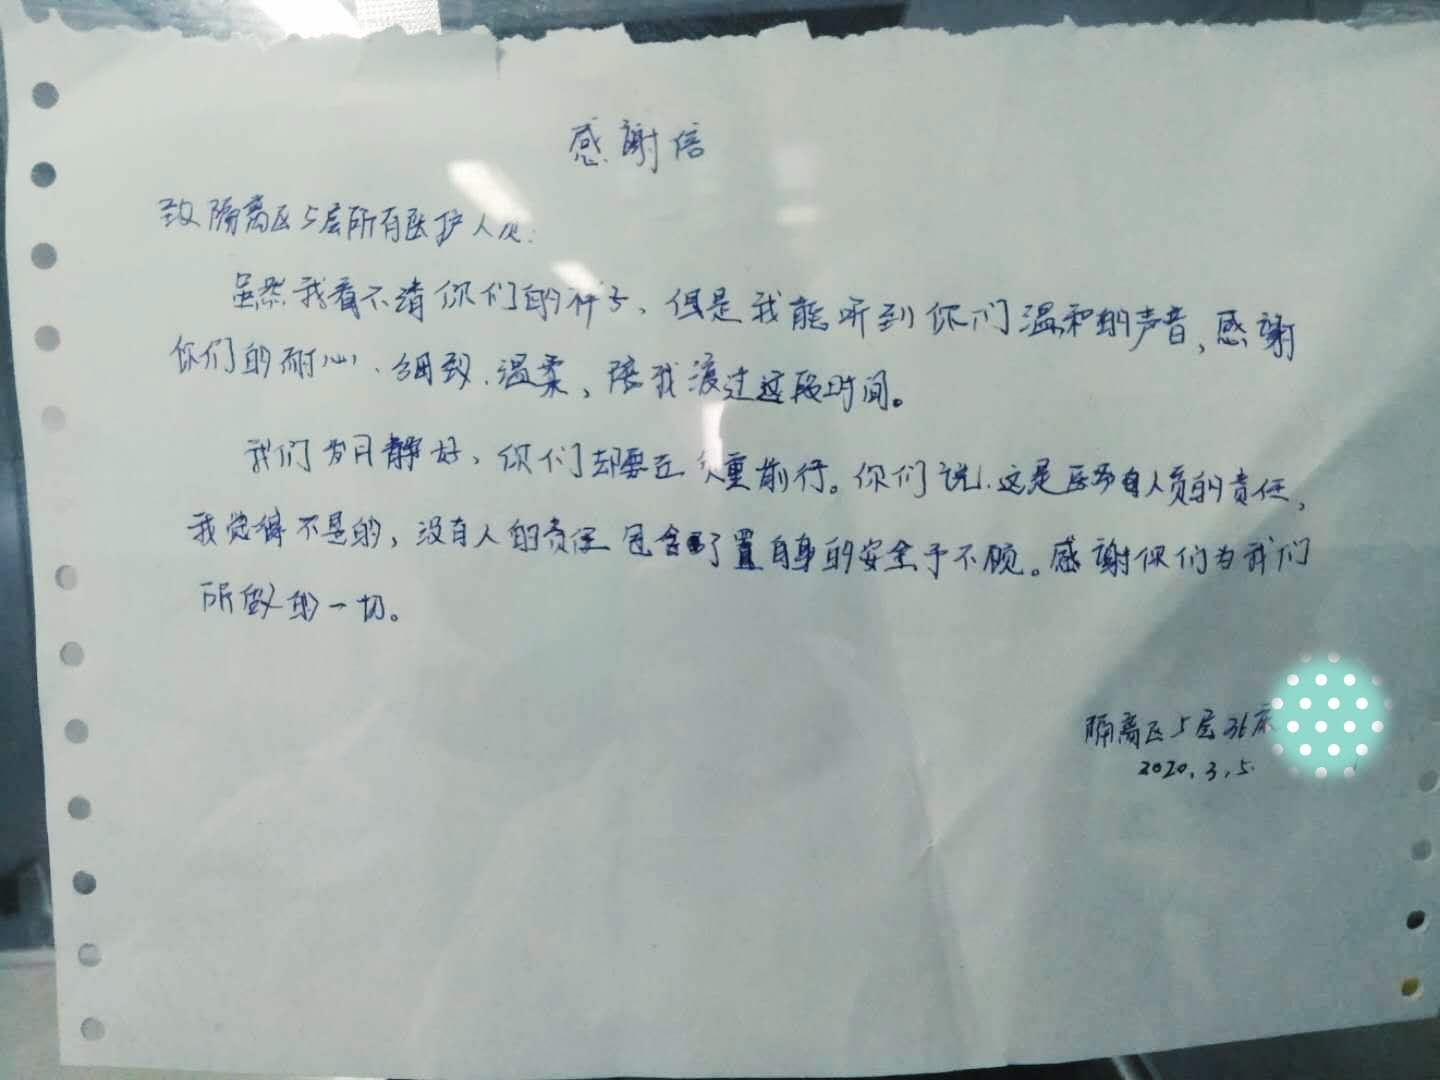 感谢信
致隔离区5层所有医护人员:
虽然我看不清你们的样子、但是我能听到你们温和的声音,感谢
你们的耐心、细致、温柔,陪我渡过这段时间。
我们岁月静好、你们却要在负重前行。你们说、这是医务人员的责任,
我觉得不是的,没有人的责任包含了置自身的安全于不顾。感谢你们为我们
所做的一切。
隔离区5层36床
2020.3.5.